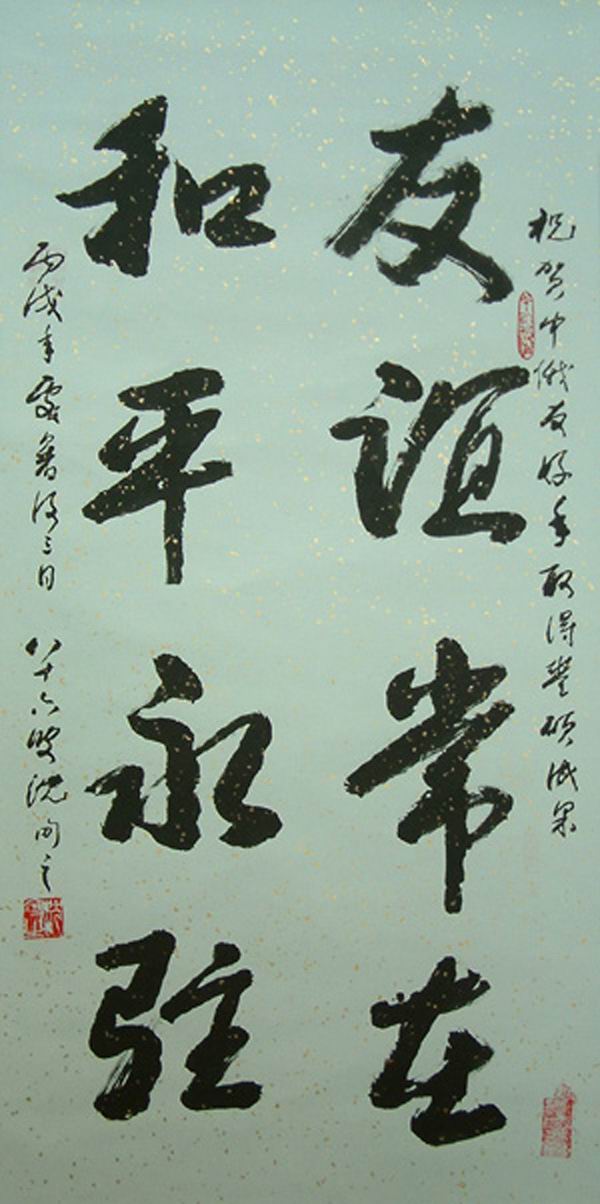 祝贺中俄友好年取得豐硕成果
友谊常在
和平永驻
丙戌年處暑後三日
八十六叟沈